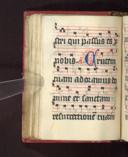 stri qui passus es p
nobis Crucem
tuam adoramus do
mine et sanctam
resurrectionem tuam